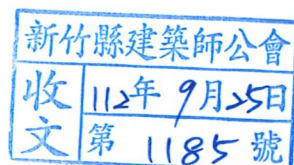 新竹縣建築師公會
收文
112年9月25日
第 1185 號